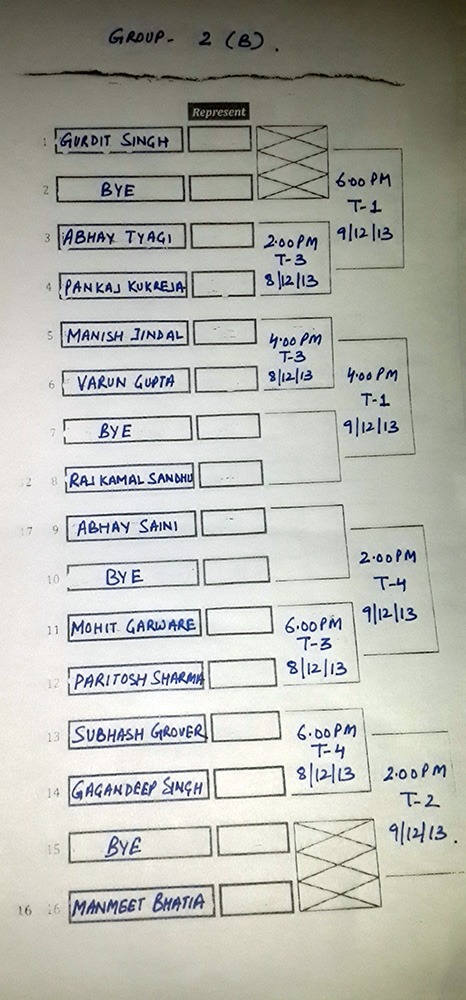 GROUP- 2 (B).
Represent
1 GURDIT SINGH
2 BYE
6:00 PM
T-1
9/12/13
3 ABHAY TYAGI
2:00PM
T-3
8/12/13
4 PANKAJ KUKREJA
5 MANISH JINDAL
4:00PM
T-3
8/12/13
6 VARUN GUPTA
4:00PM
T-1
9/12/13
7 BYE
12 8 RAJ KAMAL SANDHU
17 9 ABHAY SAINI
10 BYE
2:00PM
T-4
9/12/13
11 MOHIT GARWARE
6:00PM
T-3
8/12/13
12 PARITOSH SHARMA
13 SUBHASH GROVER
6:00PM
T-4
8/12/13
14 GAGANDEEP SINGH
2:00PM
T-2
9/12/13.
15 BYE
16 16 MANMEET BHATIA